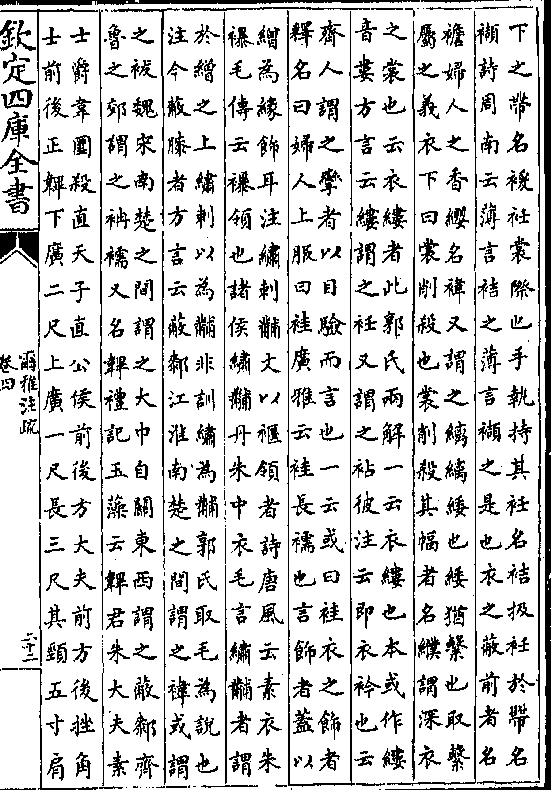 下之帶名褑衽裳際也手執持其衽名袺扱衽於帶名
襭詩周南云薄言袺之薄言襭之是也衣之蔽前者名
襜婦人之香纓名褘又謂之縭縭緌也緌猶繫也取繫
屬之義衣下曰裳削殺也裳削殺其幅者名纀謂深衣
之裳也云衣縷者此郭氏兩解一云衣縷也本或作縷
音婁方言云縷謂之衽又謂之袩彼注云即衣衿也云
齊人謂之攣者以目驗而言也一云或曰袿衣之飾者
釋名曰婦人上服曰袿廣雅云袿長襦也言飾者蓋以
繒為緣飾耳注繡刺黼文以褗領者詩唐風云素衣朱
襮毛傳云襮領也諸侯繡黼丹朱中衣毛言繡黼者謂
於繒之上繡刺以為黼非訓繡為黼郭氏取毛為說也
注今蔽膝者方言云蔽厀江淮南楚之間謂之褘或謂
之袚魏宋南楚之間謂之大巾自關東西謂之蔽厀齊
魯之郊謂之衻襦又名韠禮記玉藻云韠君朱大夫素
士爵韋圜殺直天子直公侯前後方大夫前方後挫角
士前後正韠下廣二尺上廣一尺長三尺其頸五寸肩
欽定四庫全書
爾雅注疏
卷四
二十二